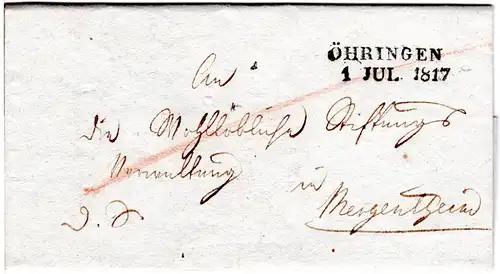 ÖHRINGEN
1 JUL. 1817
An
die Wohllöbliche Stiftungs
Verwaltung
in
Mergentheim